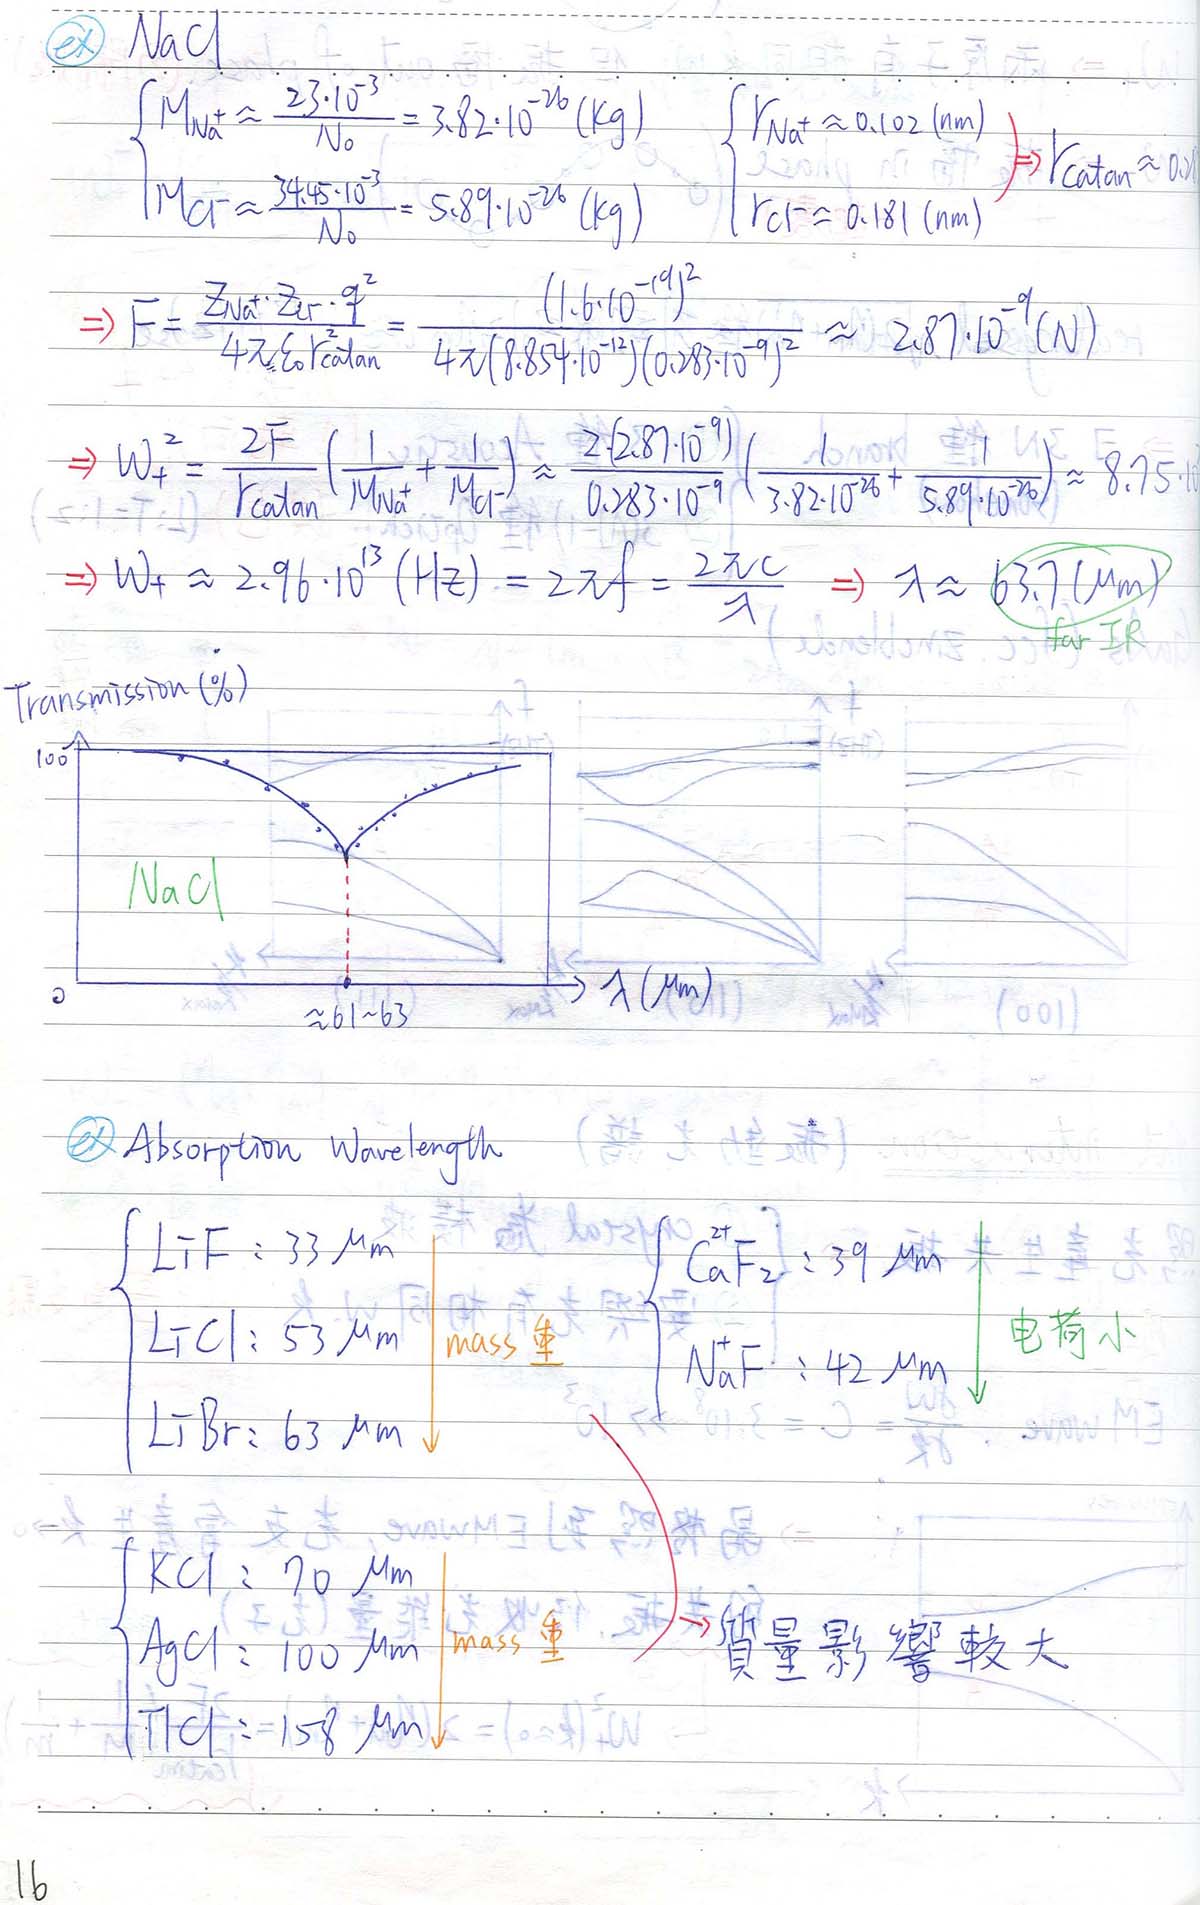 ex NaCl
M_Na⁺ ≈ 23·10⁻³/N₀ = 3.82·10⁻²⁶ (kg)
M_Cl⁻ ≈ 34.45·10⁻³/N₀ = 5.89·10⁻²⁶ (kg)
r_Na⁺ ≈ 0.102 (nm)
r_Cl⁻ ≈ 0.181 (nm)
⇒ r_catan ≈ 0.2
⇒ F = Z_Na⁺·Z_Cl⁻·q²/4πε₀r²_catan = (1.6·10⁻¹⁹)²/4π(8.854·10⁻¹²)(0.283·10⁻⁹)² ≈ 2.87·10⁻⁹ (N)
⇒ W₊² = 2F/r_catan (1/M_Na⁺ + 1/M_Cl⁻) ≈ 2·(2.87·10⁻⁹)/0.283·10⁻⁹ (1/3.82·10⁻²⁶ + 1/5.89·10⁻²⁶) ≈ 8.75·10
⇒ W₊ ≈ 2.96·10¹³ (Hz) = 2πf = 2πc/λ ⇒ λ ≈ 63.7 (μm)
far IR
Transmission (%)
100
NaCl
0
λ (μm)
≈61~63
ex Absorption Wavelength
LiF : 33 μm
LiCl : 53 μm
LiBr : 63 μm
mass 重
Ca²⁺F₂ : 39 μm
Na⁺F : 42 μm
电荷小
KCl : 70 μm
AgCl : 100 μm
TlCl : 158 μm
mass 重
→ 質量影響較大
16